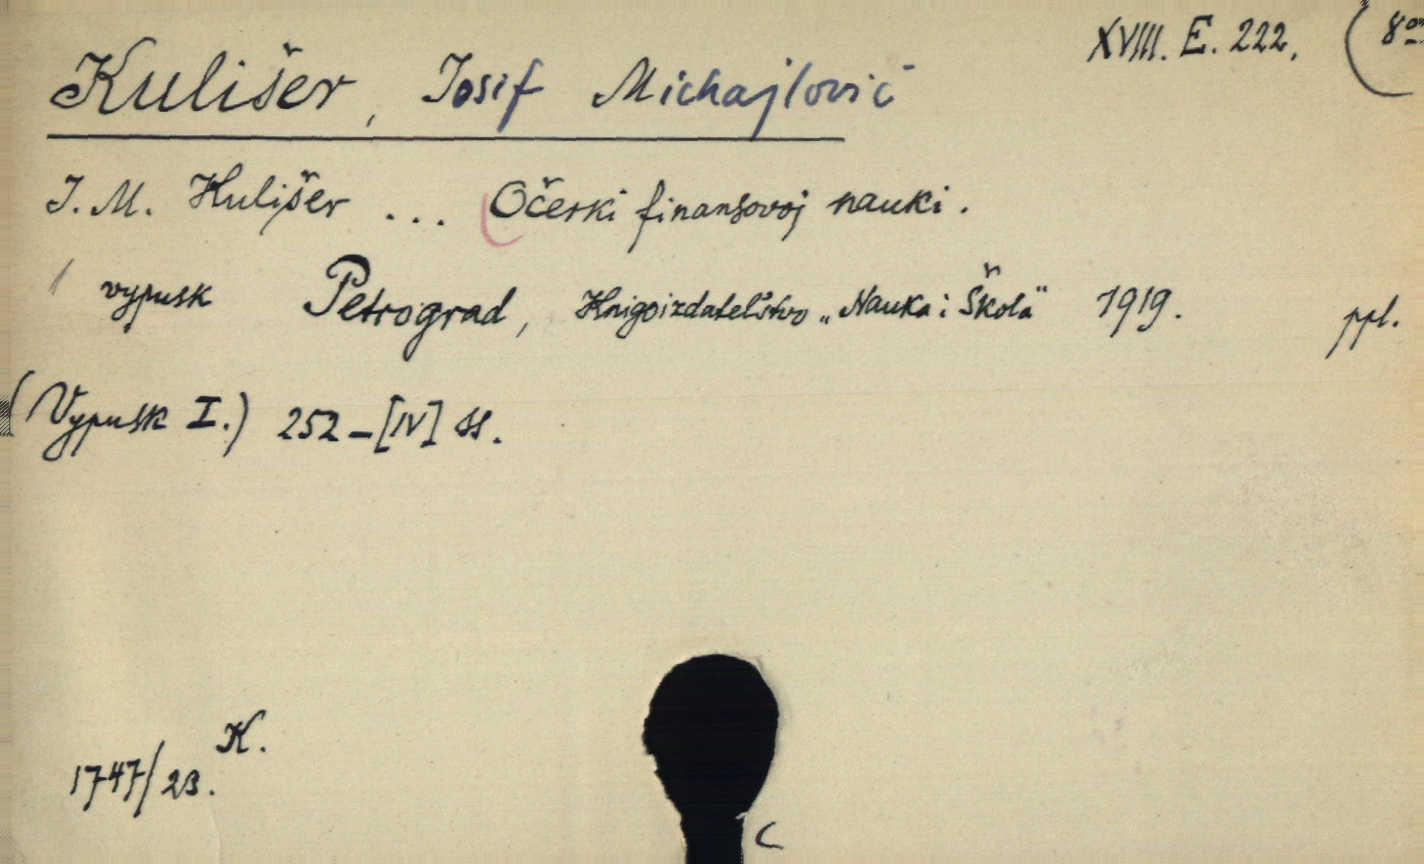 XVIII. E. 222. (8°
Kulišer, Iosif Michajlovič
I. M. Kulišer ... Očerki finansovoj nauki.
1 vypusk Petrograd, Knigoizdatel'stvo „Nauka i Škola" 1919. ppl.
(Vypusk I.) 252-[IV] ss.
K.
1747/23.
C